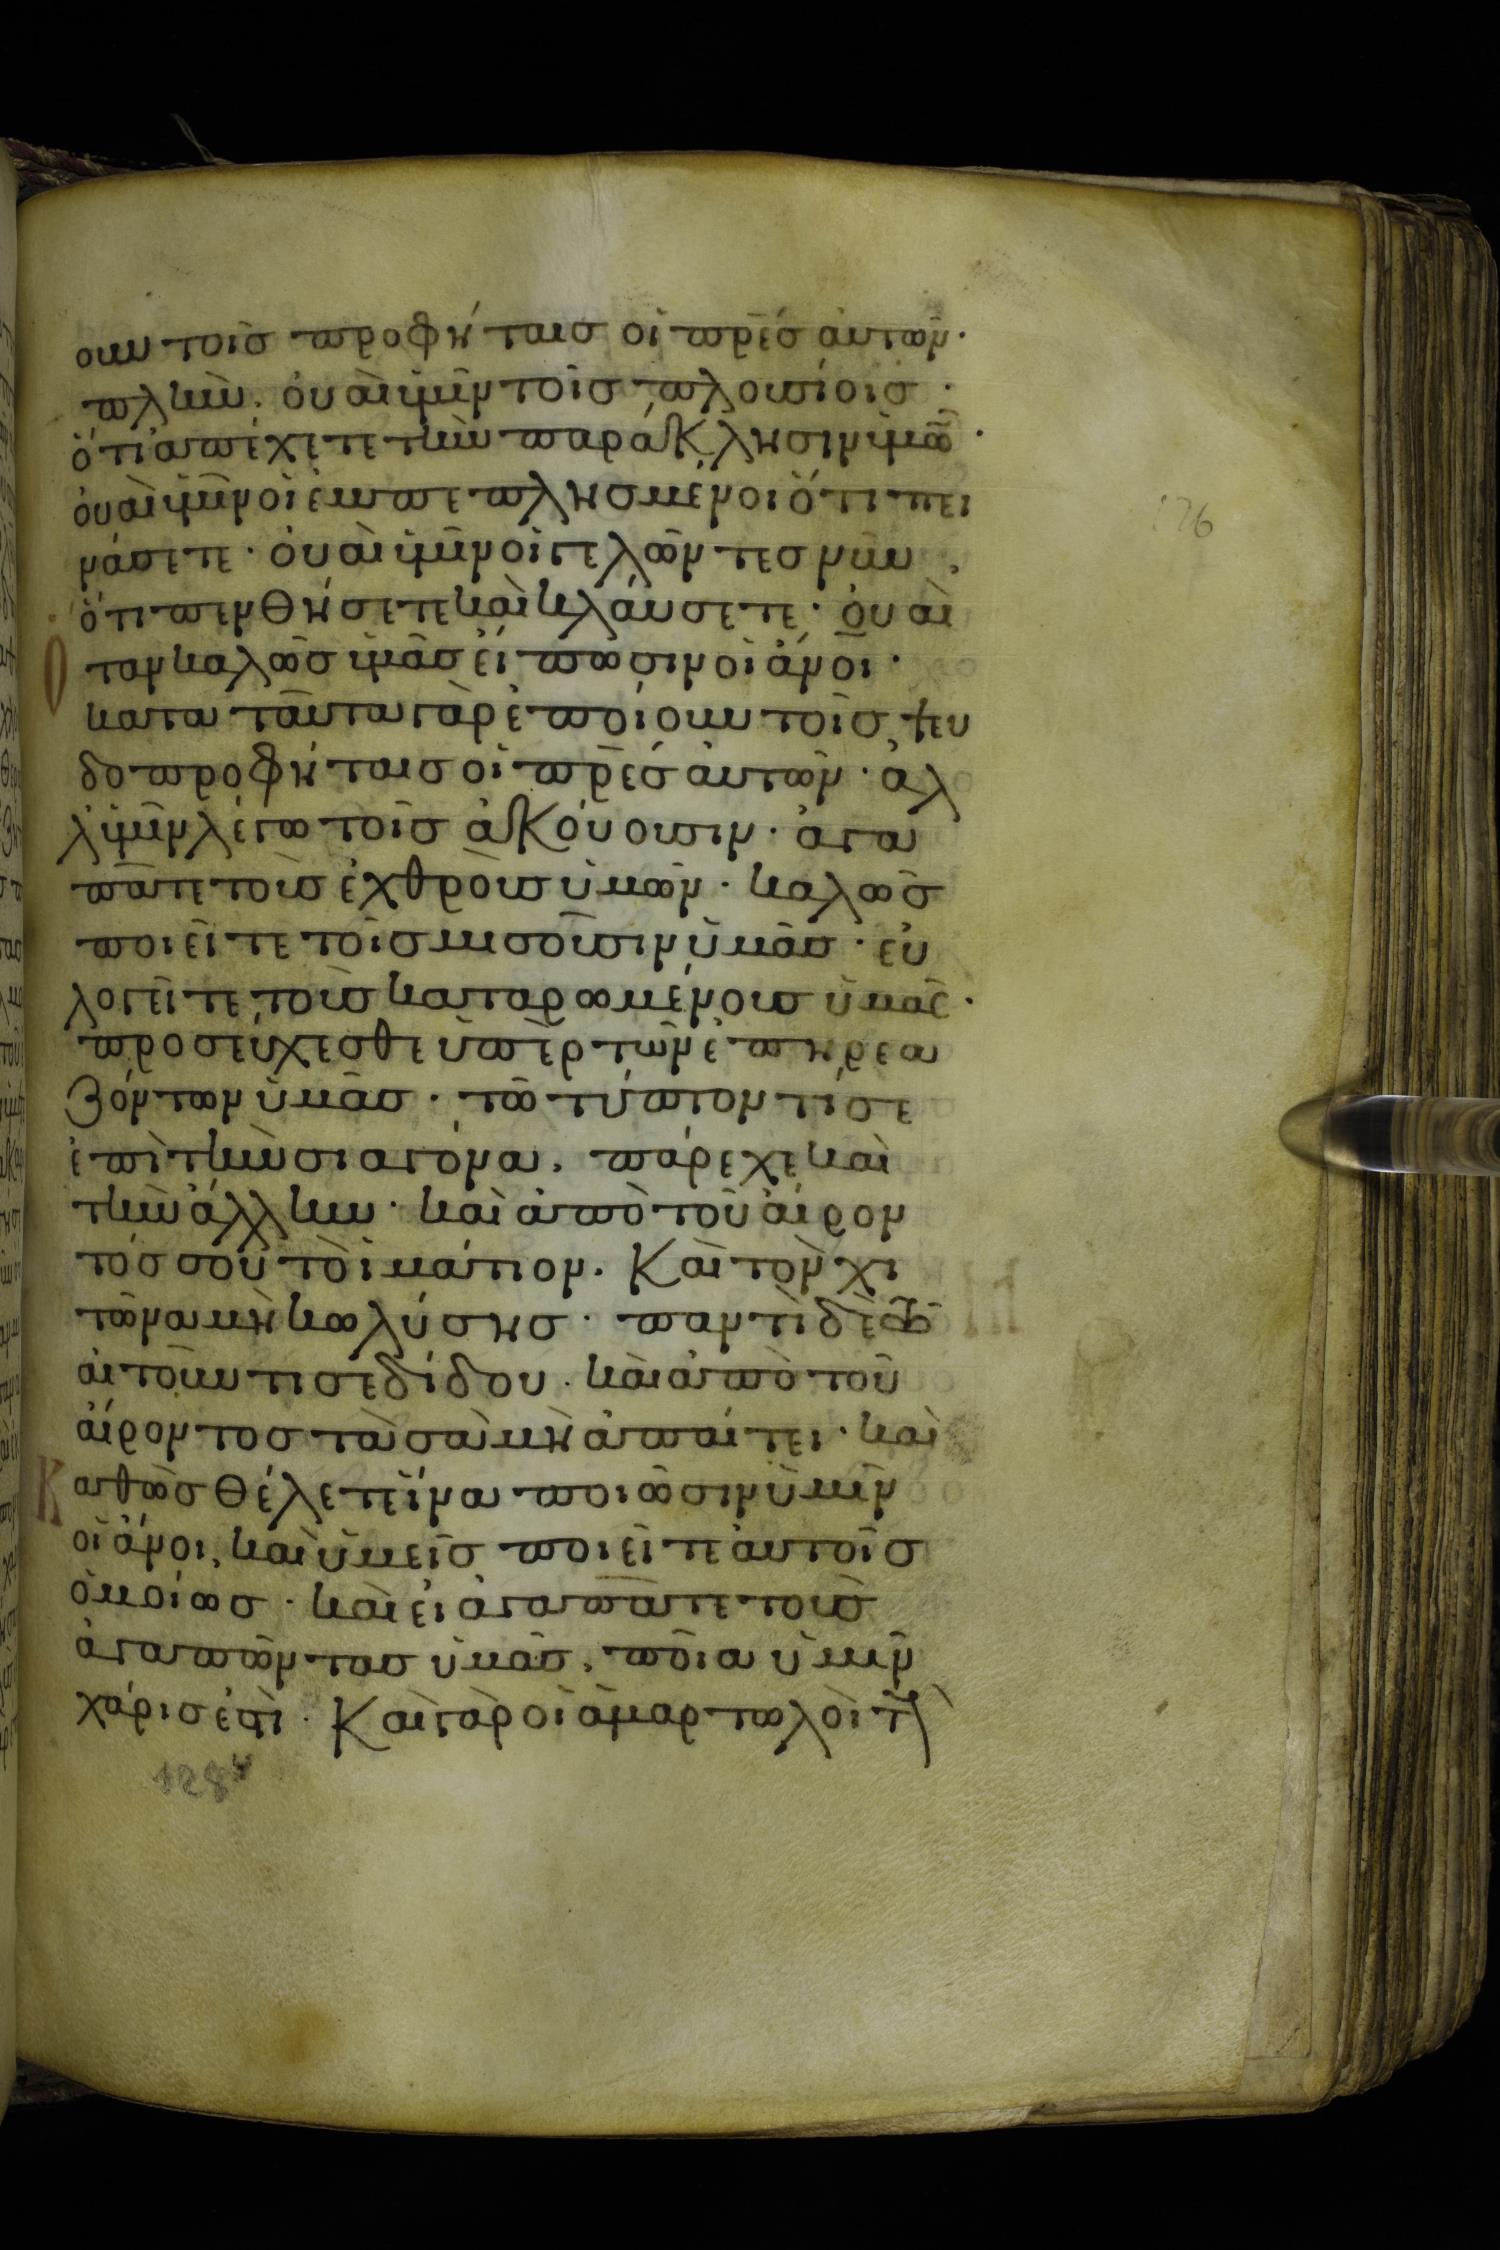 ουν τοῖσ προφήταισ οἱ πρ̅έσ ἀυτῶν·
πλὴν. ὀυαὶ ὑμῖν τοῖσ πλουσίοισ·
ὅτι ἀπέχετε τὴν παράκλησιν ὑμῶ̅·
ὀυαὶ ὑμῖν οἱ ἐμπεπλησμένοι ὅτι πει
νάσετε· ὀυαὶ ὑμῖν οἱ γελῶντεσ νῦν,
ὅτι πενθήσετε καὶ κλάυσετε· ὀυαὶ
Ὅταν καλῶσ ὑμᾶσ ἐίπωσιν οἱ ἄν̅οι·
κατα ταῦτα γὰρ ἐποίουν τοῖσ ψευ
δοπροφήταισ οἱ πρ̅έσ ἀυτῶν· ἀλ
λ' ὑμῖν λέγω τοῖσ ἀκόυουσιν· ἀγα
πᾶτε τοὺσ ἐχθροὺσ ὑμῶν· καλῶσ
ποιεῖτε τοῖσ μισοῦσιν ὑμᾶσ· ἐυ
λογεῖτε τοὺσ καταρωμένουσ ὑμᾶς·
προσέυχεσθε ὑπὲρ τῶν ἐπηρεα
ζόντων ὑμᾶσ· τῶ τύπτοντί σε
ἐπὶ τὴν σιαγόνα, πάρεχε καὶ
τὴν ἄλλην· καὶ ἀπὸ τοῦ ἄιρον
τόσ σου τὸ ἱμάτιον. Καὶ τὸν χι
τῶνα μὴ κωλύσησ· παντὶ δὲ τῶ
ἀιτοῦντι σε δίδου· καὶ ἀπὸ τοῦ
ἄιροντοσ τὰ σὰ μὴ ἀπαίτει· καὶ
Καθὼσ θέλετε ἵνα ποιῶσιν ὑμῖν
οἱ ἄνοι, καὶ ὑμεῖσ ποιεῖτε ἀυτοῖσ
ὁμοίωσ· καὶ ἐι ἀγαπᾶτε τοὺσ
ἀγαπῶντασ ὑμᾶσ, ποῖα ὑμῖν
χάρισ ἐστὶ· Καὶ γὰρ οἱ ἁμαρτωλοὶ τ(οὺσ)
126